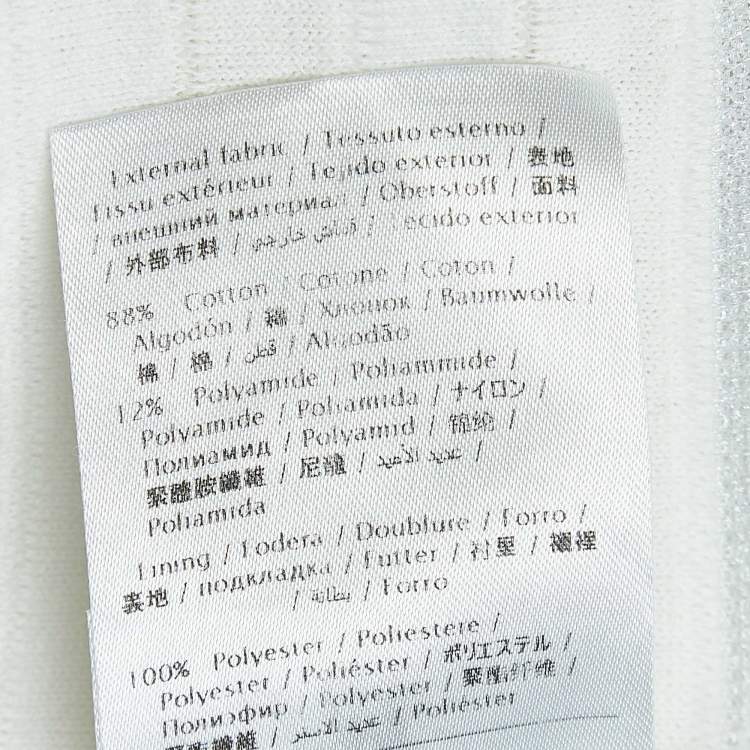 External fabric / Tessuto esterno /
Tissu extérieur / Tejido exterior / 表地
/ внешний материал / Oberstoff / 面料
/ 外部布料 / قماش خارجي / Tecido exterior
88% Cotton / Cotone / Coton /
Algodón / 綿 / Хлопок / Baumwolle /
棉 / 棉 / قطن / Algodão
12% Polyamide / Poliammide /
Polyamide / Poliamida / ナイロン /
Полиамид / Polyamid / 锦纶 /
聚醯胺纖維 / 尼龍 / عديد الأميد /
Poliamida
Lining / Fodera / Doublure / Forro /
表地 / подкладка / Futter / 衬里 / 襯裡
/ بطانة / Forro
100% Polyester / Poliestere /
Polyester / Poliéster / ポリエステル /
Полиэфир / Polyester / 聚酯纤维 /
/ عديد الاستر / Poliéster